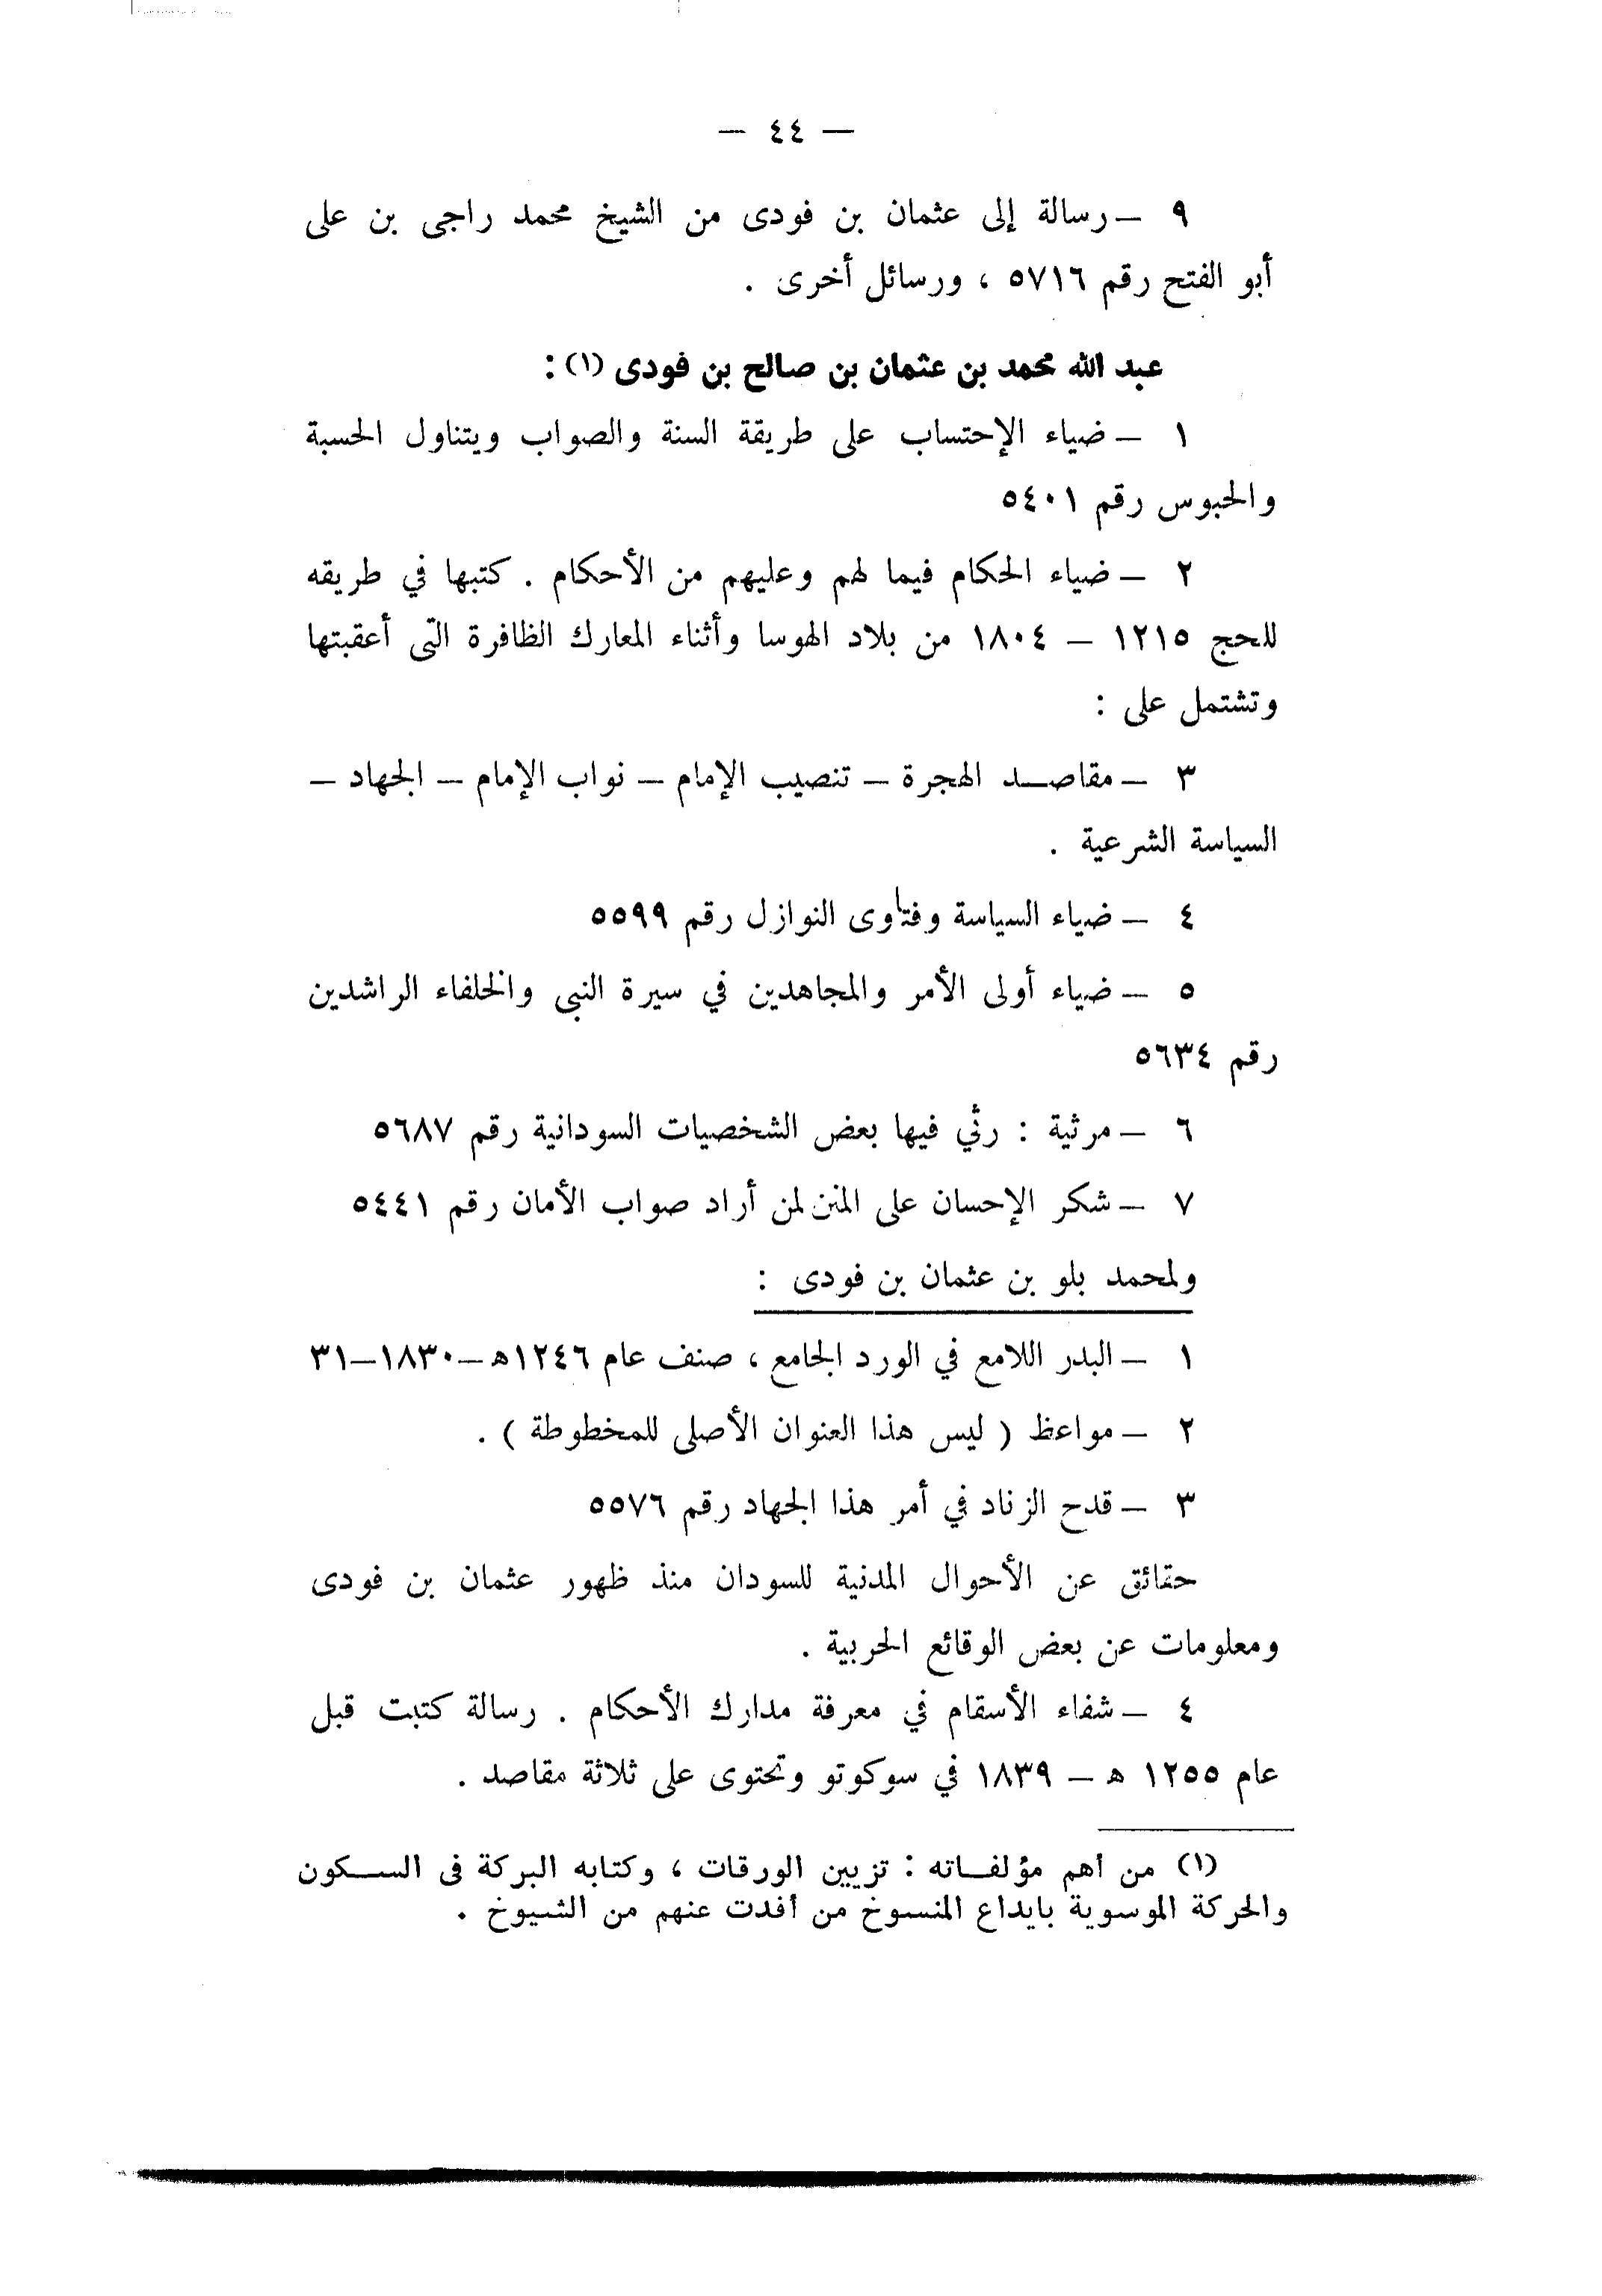 — ٤٤ —
٩ — رسالة إلى عثمان بن فودى من الشيخ محمد راجى بن على
أبو الفتح رقم ٥٧١٦ ، ورسائل أخرى .
عبد الله محمد بن عثمان بن صالح بن فودى (١) :
١ — ضياء الإحتساب على طريقة السنة والصواب ويتناول الحسبة
والحبوس رقم ٥٤٠١
٢ — ضياء الحكام فيما لهم وعليهم من الأحكام . كتبها في طريقه
للحج ١٢١٥ — ١٨٠٤ من بلاد الهوسا وأثناء المعارك الظافرة التى أعقبتها
وتشتمل على :
٣ — مقاصد الهجرة — تنصيب الإمام — نواب الإمام — الجهاد —
السياسة الشرعية .
٤ — ضياء السياسة وفتاوى النوازل رقم ٥٥٩٩
٥ — ضياء أولى الأمر والمجاهدين في سيرة النبى والخلفاء الراشدين
رقم ٥٦٣٤
٦ — مرثية : رثي فيها بعض الشخصيات السودانية رقم ٥٦٨٧
٧ — شكر الإحسان على المنن لمن أراد صواب الأمان رقم ٥٤٤١
ولمحمد بلو بن عثمان بن فودى :
١ — البدر اللامع في الورد الجامع ، صنف عام ١٢٤٦ه—١٨٣٠—٣١
٢ — مواعظ ( ليس هذا العنوان الأصلى للمخطوطة ) .
٣ — قدح الزناد في أمر هذا الجهاد رقم ٥٥٧٦
حقائق عن الأحوال المدنية للسودان منذ ظهور عثمان بن فودى
ومعلومات عن بعض الوقائع الحربية .
٤ — شفاء الأسقام في معرفة مدارك الأحكام . رسالة كتبت قبل
عام ١٢٥٥ ه — ١٨٣٩ في سوكوتو وتحتوى على ثلاثة مقاصد .
(١) من أهم مؤلفاته : تزيين الورقات ، وكتابه البركة فى السكون
والحركة الموسوية بايداع المنسوخ من أفدت عنهم من الشيوخ .